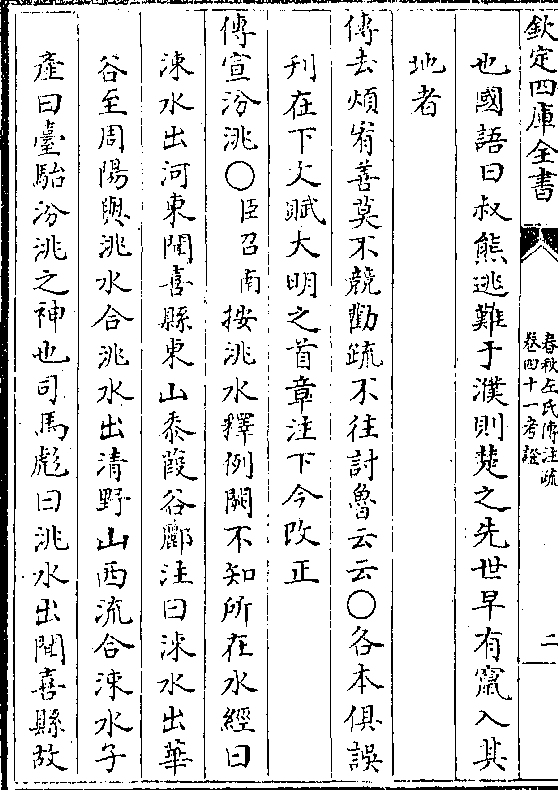 欽定四庫全書
春秋左氏傳注疏
卷四十一考證
二
也國語曰叔熊逃難于濮則楚之先世早有竄入其
地者
傳去煩宥善莫不競勸疏不往討魯云云〇各本俱誤
刋在下文賦大明之首章注下今改正
傳宣汾洮〇臣召南按洮水釋例闕不知所在水經曰
涑水出河東聞喜縣東山黍葭谷酈注曰涑水出華
谷至周陽與洮水合洮水出清野山西流合涑水子
產曰臺駘汾洮之神也司馬彪曰洮水出聞喜縣故